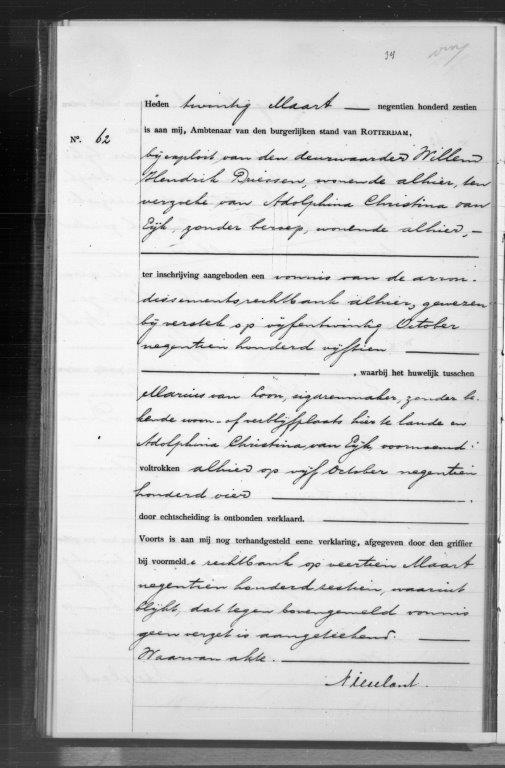 34
Heden twintig Maart negentien honderd zestien
No. 62
is aan mij, Ambtenaar van den burgerlijken stand van ROTTERDAM,
bij exploit van den deurwaarder Willem
Hendrik Driessen, wonende alhier, ten
verzoeke van Adolphina Christina van
Eijk, zonder beroep, wonende alhier,
ter inschrijving aangeboden een vonnis van de arron-
dissementsrechtbank alhier, gewezen
bij verstek op vijfentwintig October
negentien honderd vijftien
, waarbij het huwelijk tusschen
Marius van Loon, sigarenmaker, zonder be-
kende woon- of verblijfplaats hier te lande en
Adolphina Christina van Eijk, voornoemd:
voltrokken alhier op vijf October negentien
honderd vier
door echtscheiding is ontbonden verklaard.
Voorts is aan mij nog terhandgesteld eene verklaring, afgegeven door den griffier
bij voormelde rechtbank op veertien Maart
negentien honderd zestien, waaruit
blijkt, dat tegen bovengemeld vonnis
geen verzet is aangeteekend.
Waarvan akte.